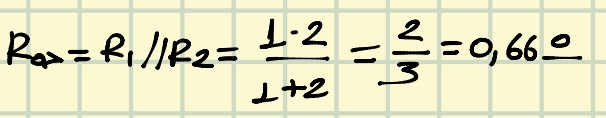 Req = R1 // R2 = \frac{1·2}{1+2} = \frac{2}{3} = 0,66 Ω